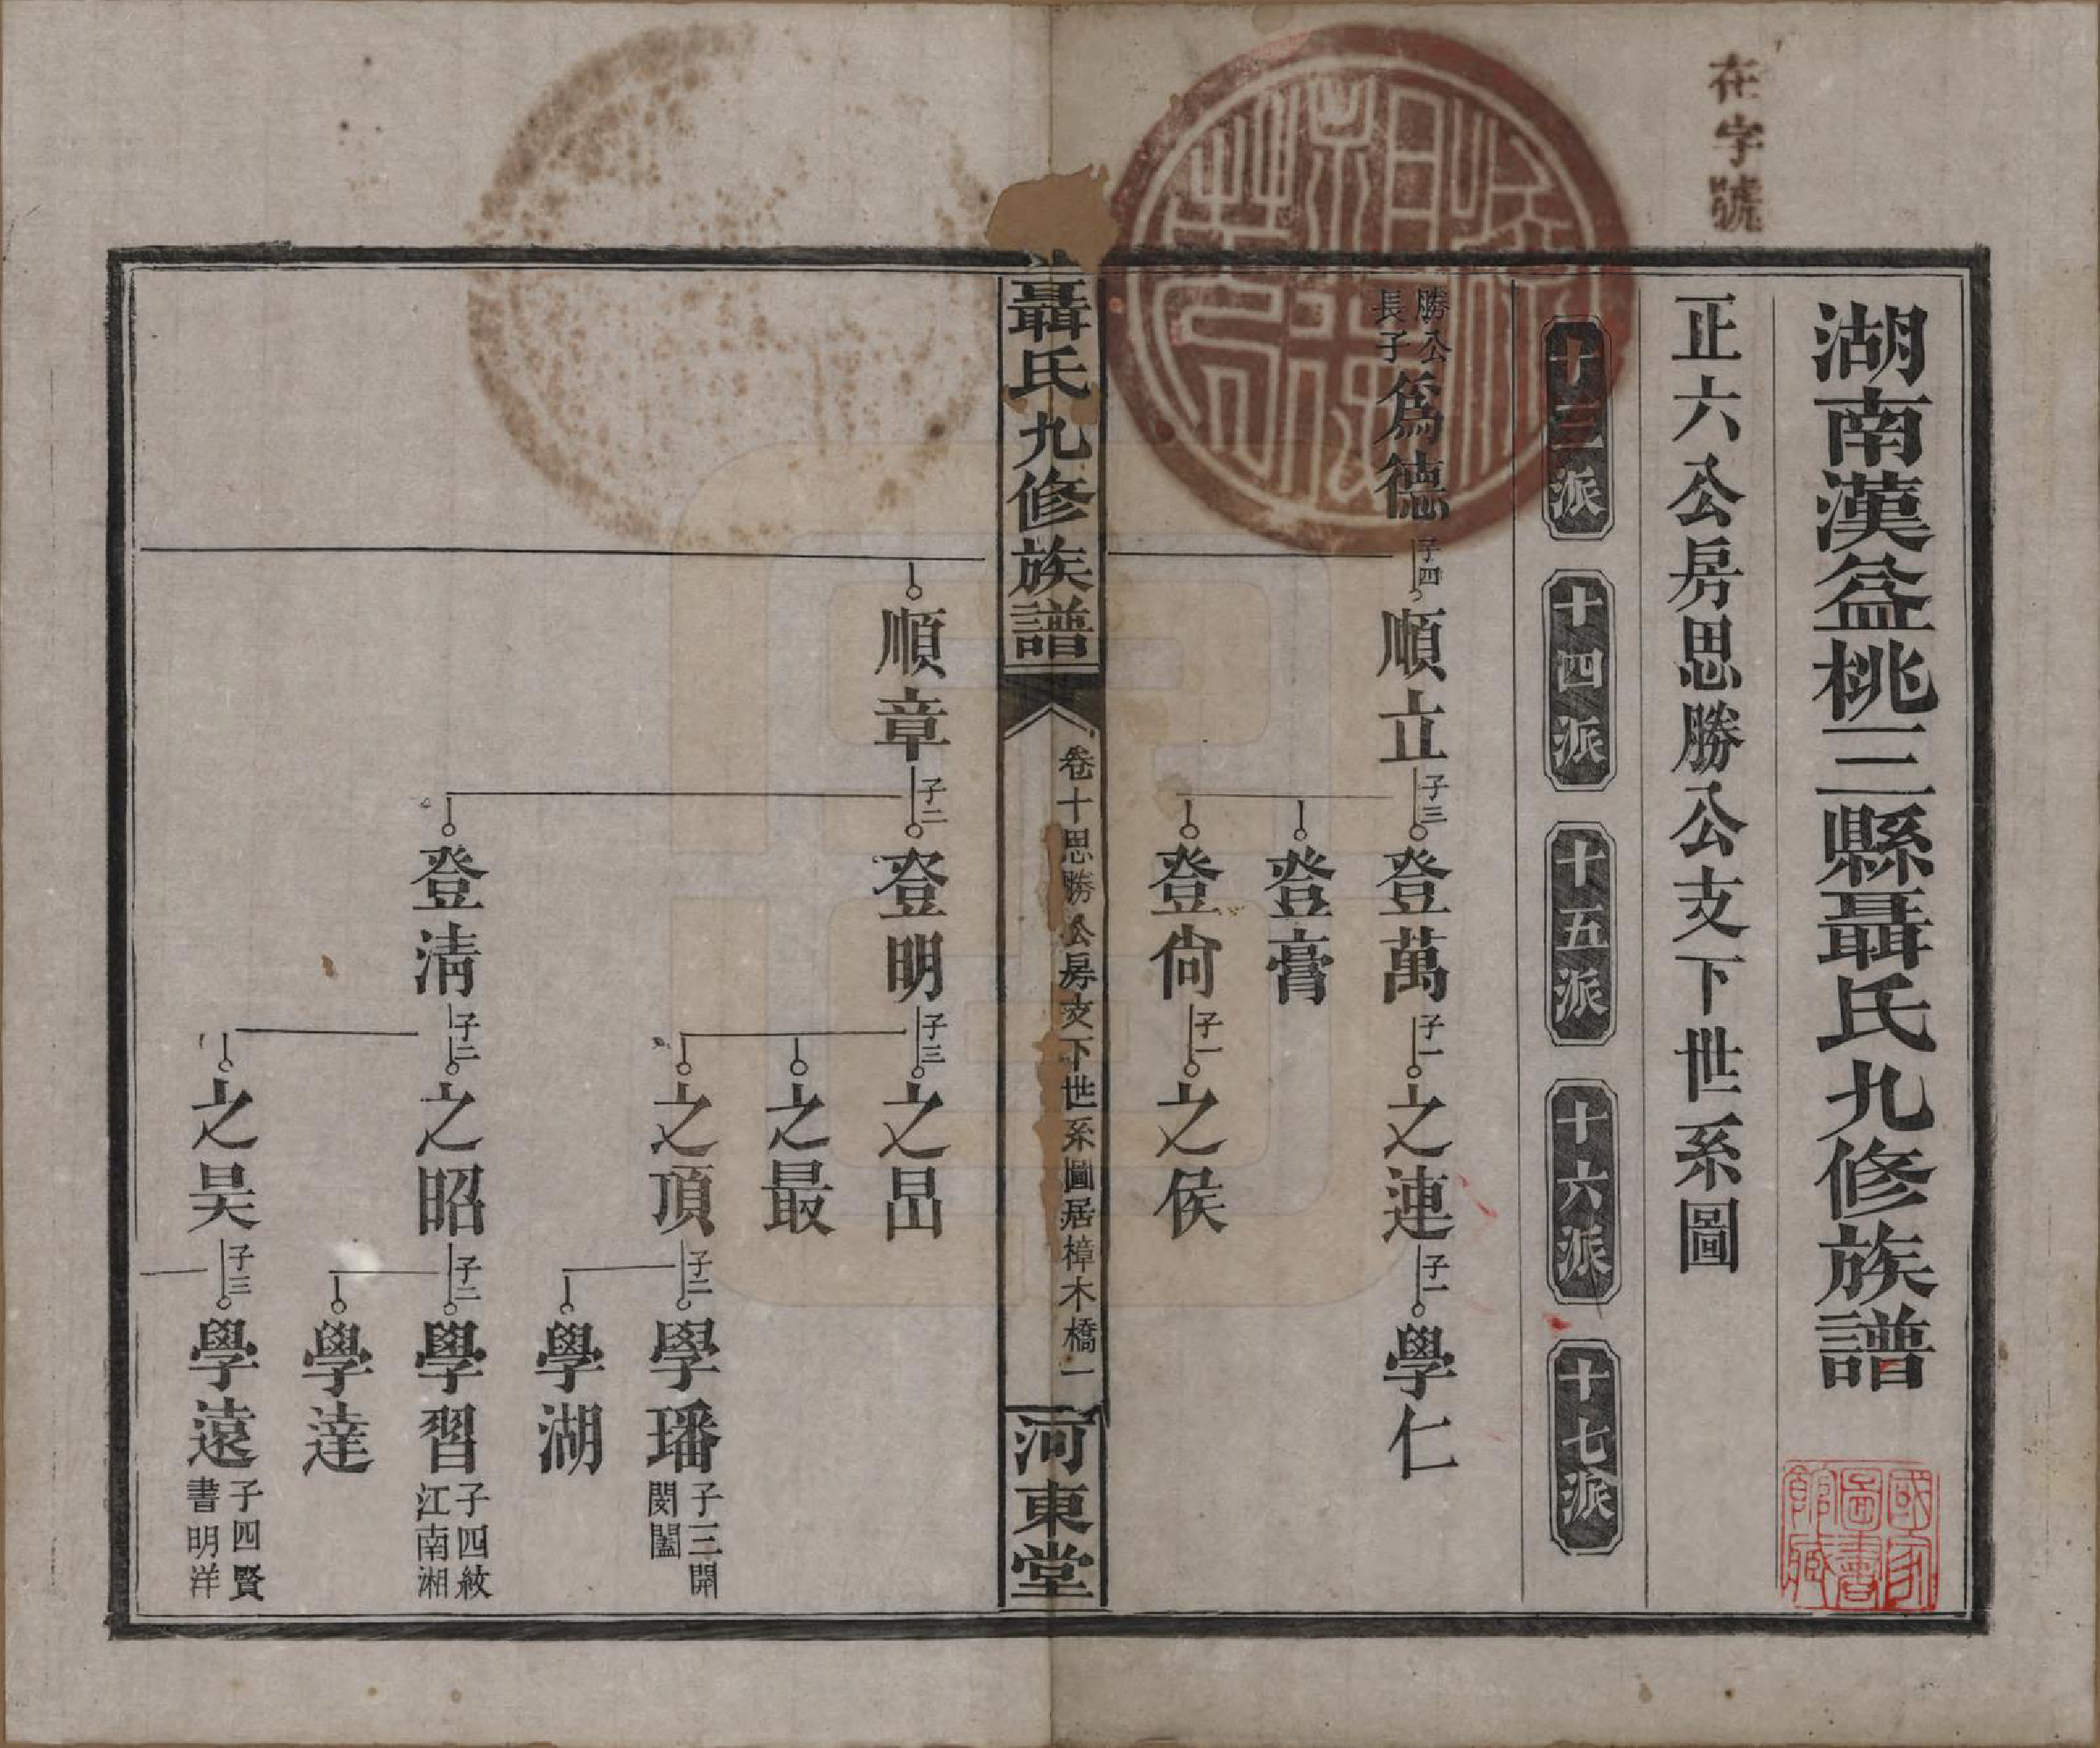 在字號
湖南漢益桃三縣聶氏九修族譜
國家圖書館藏
正六公房思勝公支下世系圖
十三派
十四派
十五派
十六派
十七派
勝公長子
爲德
子四
順立
子三
登萬
子一
之連
子一
學仁
登膏
登尙
子一
之侯
聶氏九修族譜
卷十思勝公房支下世系圖居樟木橋一
河東堂
順章
子二
登明
子三
之昷
之最
之頂
子二
學璠
子三開
閔闔
學湖
登清
子二
之昭
子二
學習
子四紋
江南湘
學達
之昊
子三
學遠
子四賢
書明洋